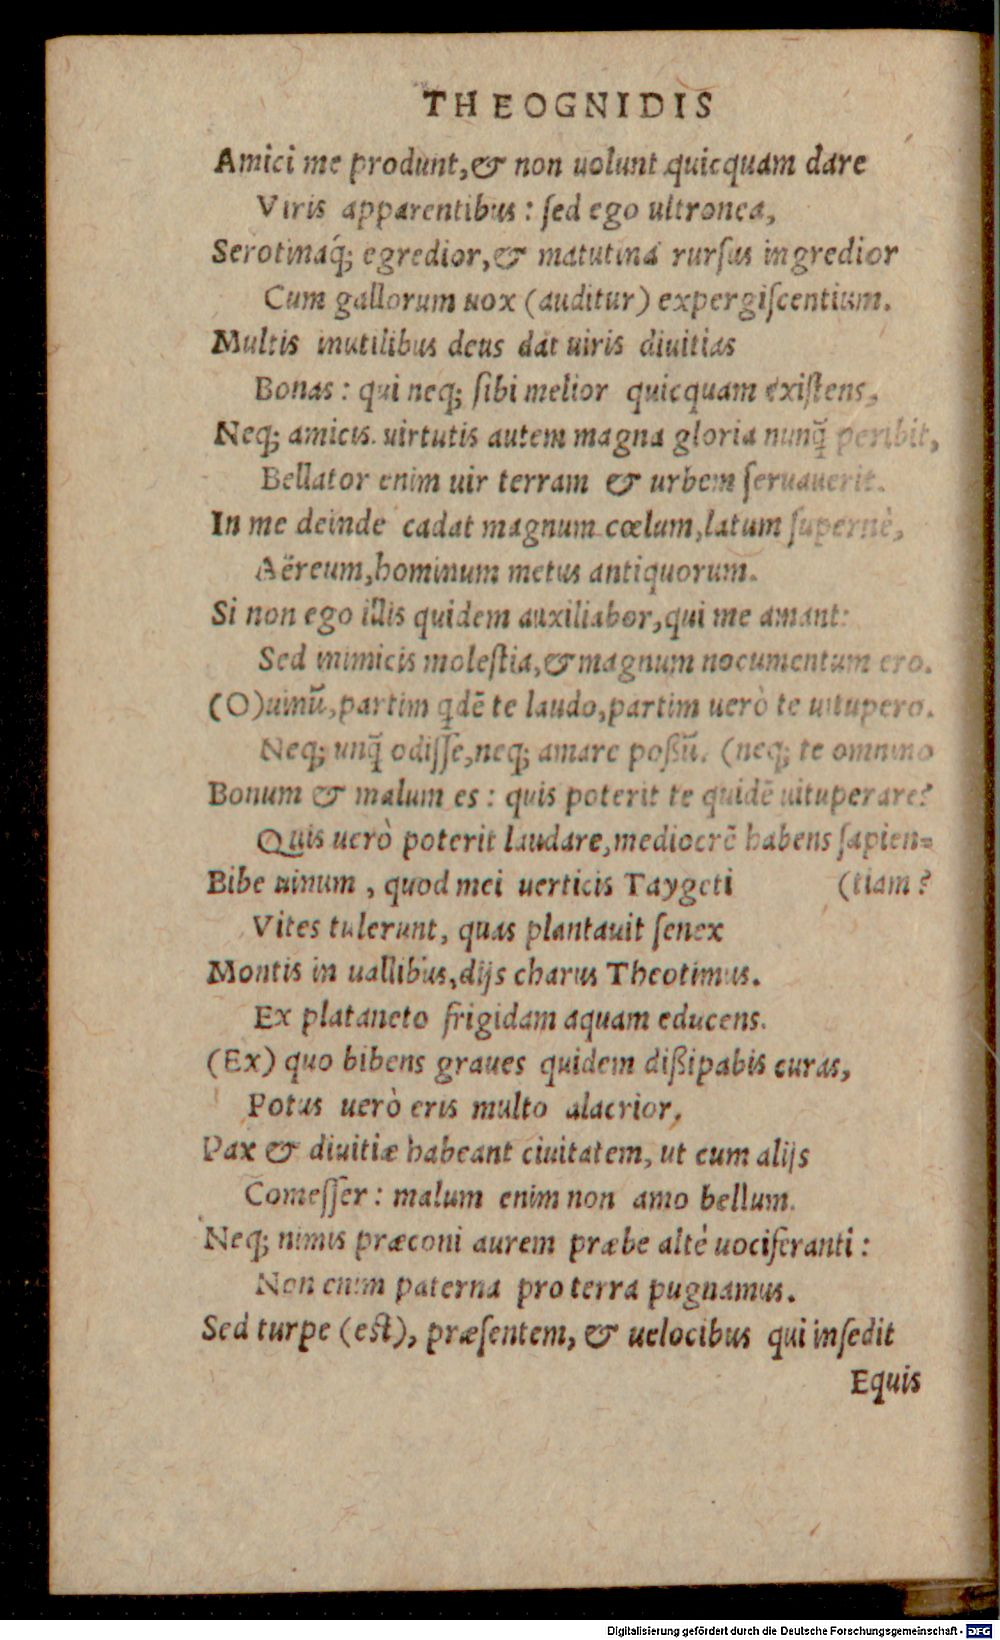 THEOGNIDIS
Amici me produnt, & non uolunt quicquam dare
Viris apparentibus: sed ego ultronea,
Serotinaq́; egredior, & matutina rursus ingredior
Cum gallorum uox (auditur) expergiscentium.
Multis inutilibus deus dat uiris diuitias
Bonas: qui neq; sibi melior quicquam existens,
Neq; amicis. uirtutis autem magna gloria nunq̃ peribit,
Bellator enim uir terram & urbem seruauerit.
In me deinde cadat magnum cœlum, latum supernè,
Aëreum, hominum metus antiquorum.
Si non ego illis quidem auxiliabor, qui me amant:
Sed inimicis molestia, & magnum nocumentum ero.
(O)uinũ, partim qdẽ te laudo, partim uerò te uitupero.
Neq; unq̃ odisse, neq; amare poßũ. (neq; te omnino
Bonum & malum es: quis poterit te quidẽ uituperare?
Quis uerò poterit laudare, mediocrẽ habens sapien=
Bibe uinum, quod mei uerticis Taygeti (tiam?
Vites tulerunt, quas plantauit senex
Montis in uallibus, dijs charus Theotimus.
Ex plataneto frigidam aquam educens.
(Ex) quo bibens graues quidem dißipabis curas,
Potus uerò eris multo alacrior,
Pax & diuitiæ habeant ciuitatem, ut cum alijs
Comesser: malum enim non amo bellum.
Neq; nimis præconi aurem præbe altè uociferanti:
Non enim paterna pro terra pugnamus.
Sed turpe (est), præsentem, & uelocibus qui insedit
Equis
Digitalisierung gefördert durch die Deutsche Forschungsgemeinschaft - DFG